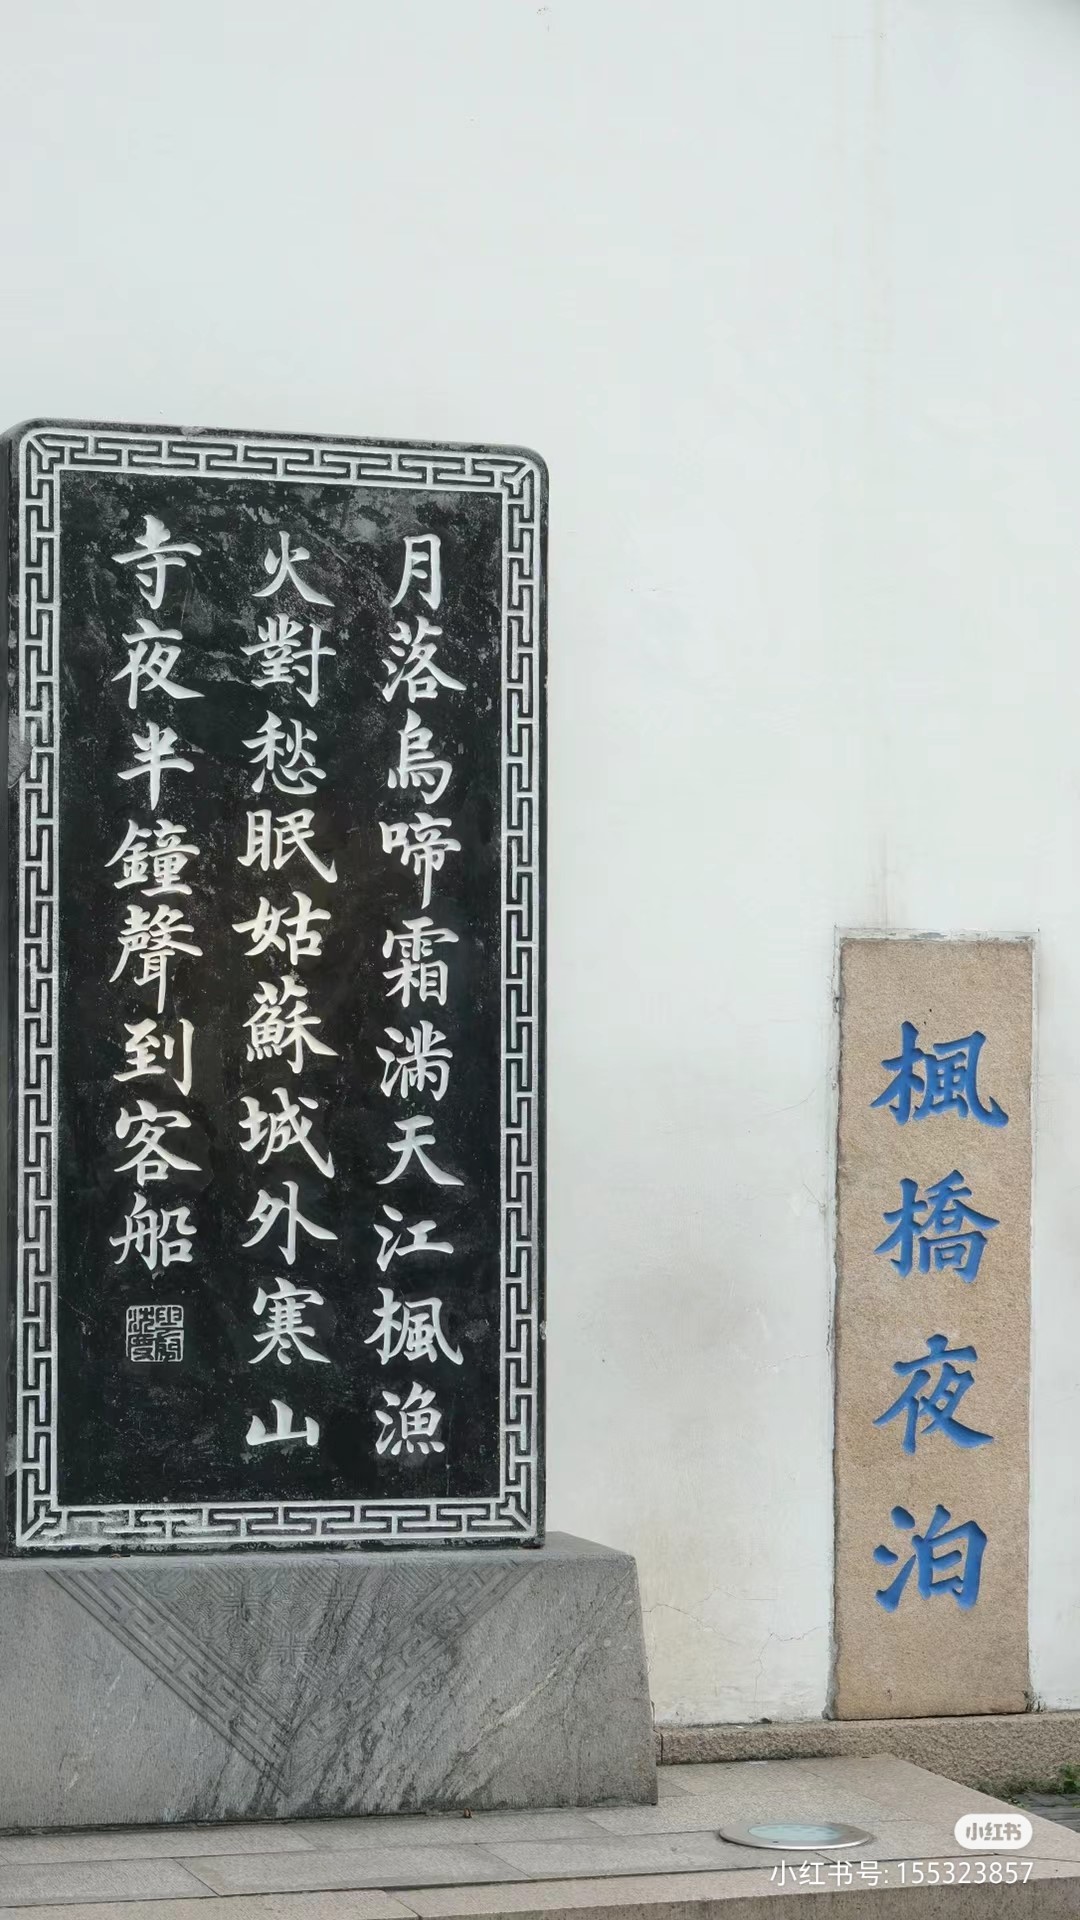 月落烏啼霜滿天江楓漁
火對愁眠姑蘇城外寒山
寺夜半鐘聲到客船
楓橋夜泊
小红书
小红书号: 155323857